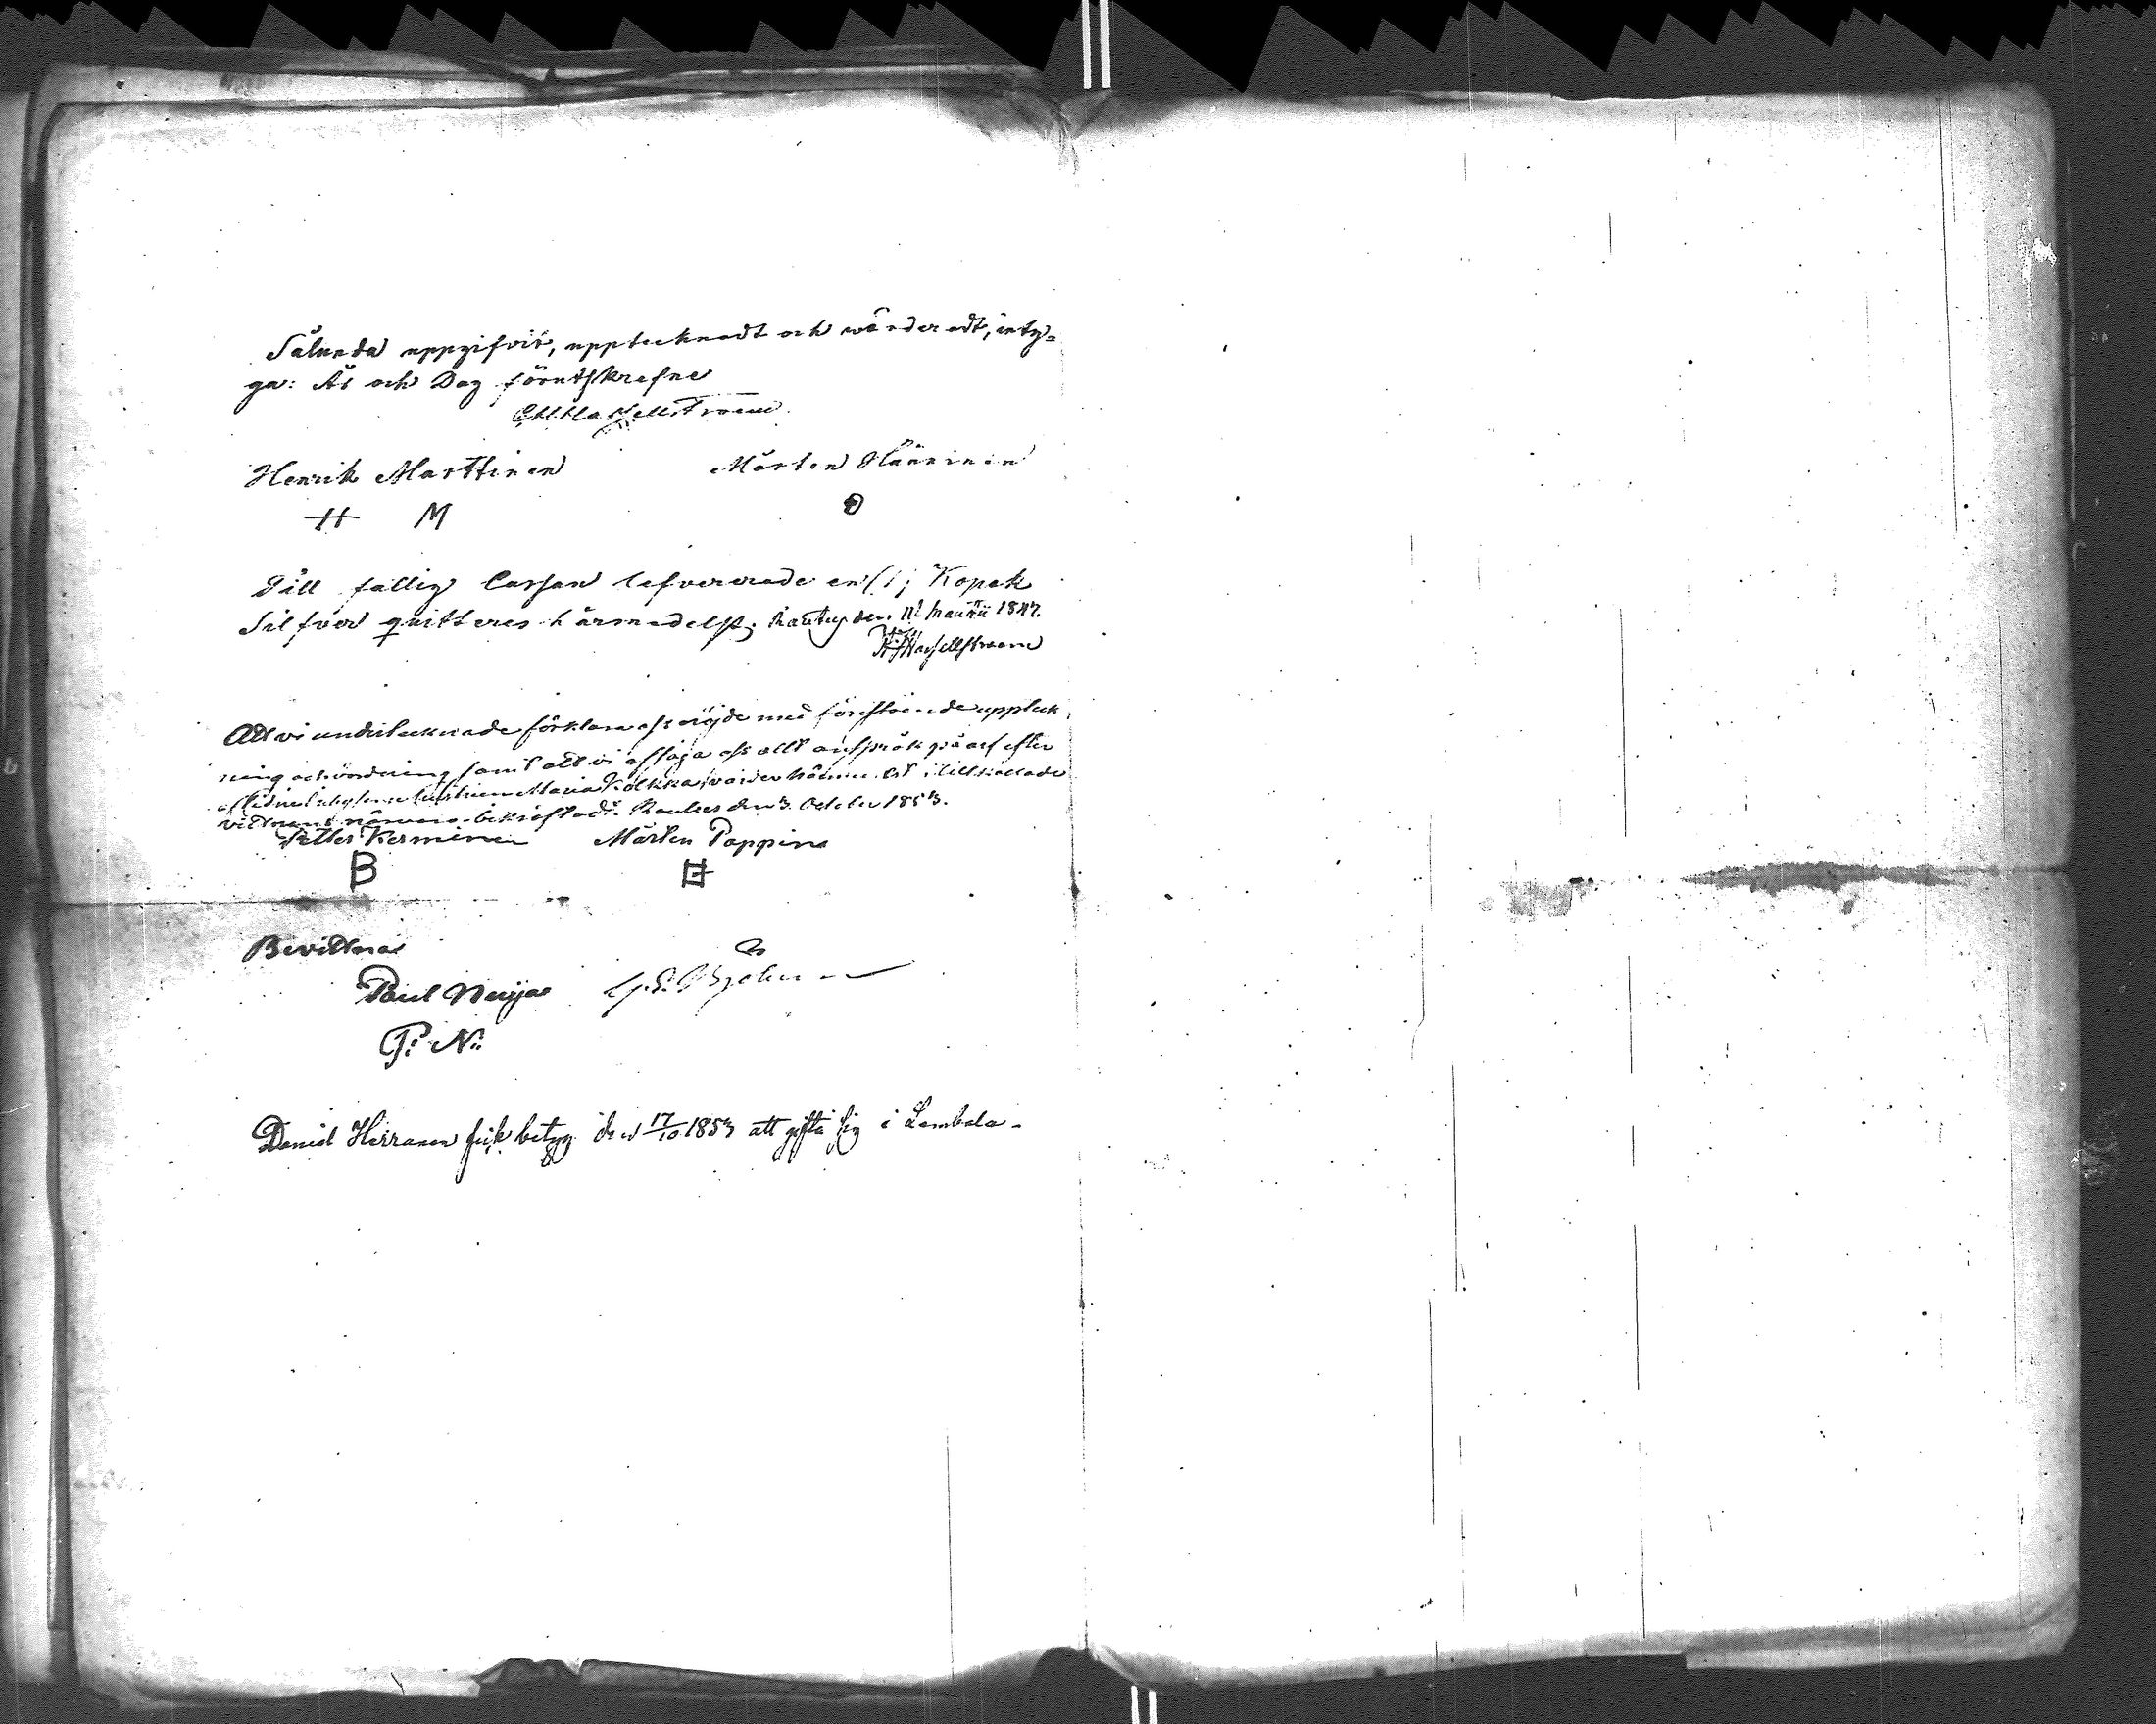 Sålunda uppgifvit, upptecknadt och wärderadt, inty=
ga: År och Dag förutskrefne
Henrik Marttinen Mårten Hänninen
H M
Till fattig Cassan lefvererade en (1) Kopek
Silfver quitteras härmedelst; Rautus den 1847.
Att vi undertecknade förklara oss nöjde med föreståendeuppteck
ning och värdering samt att vi afsäga oss allt anspråk på arf efter
aflidne Maria Kolkka, varder härmed i tillkallade
vittnens närvaro bekräftadt. Rautus den 3. October 1853.
Petter Kerminen Mårten Poppina
B
Bevittna
Paul Nuija
P: N:
Daniel Hirranen fick betyg den 17/10 1853 att gifta sig i Lembala.